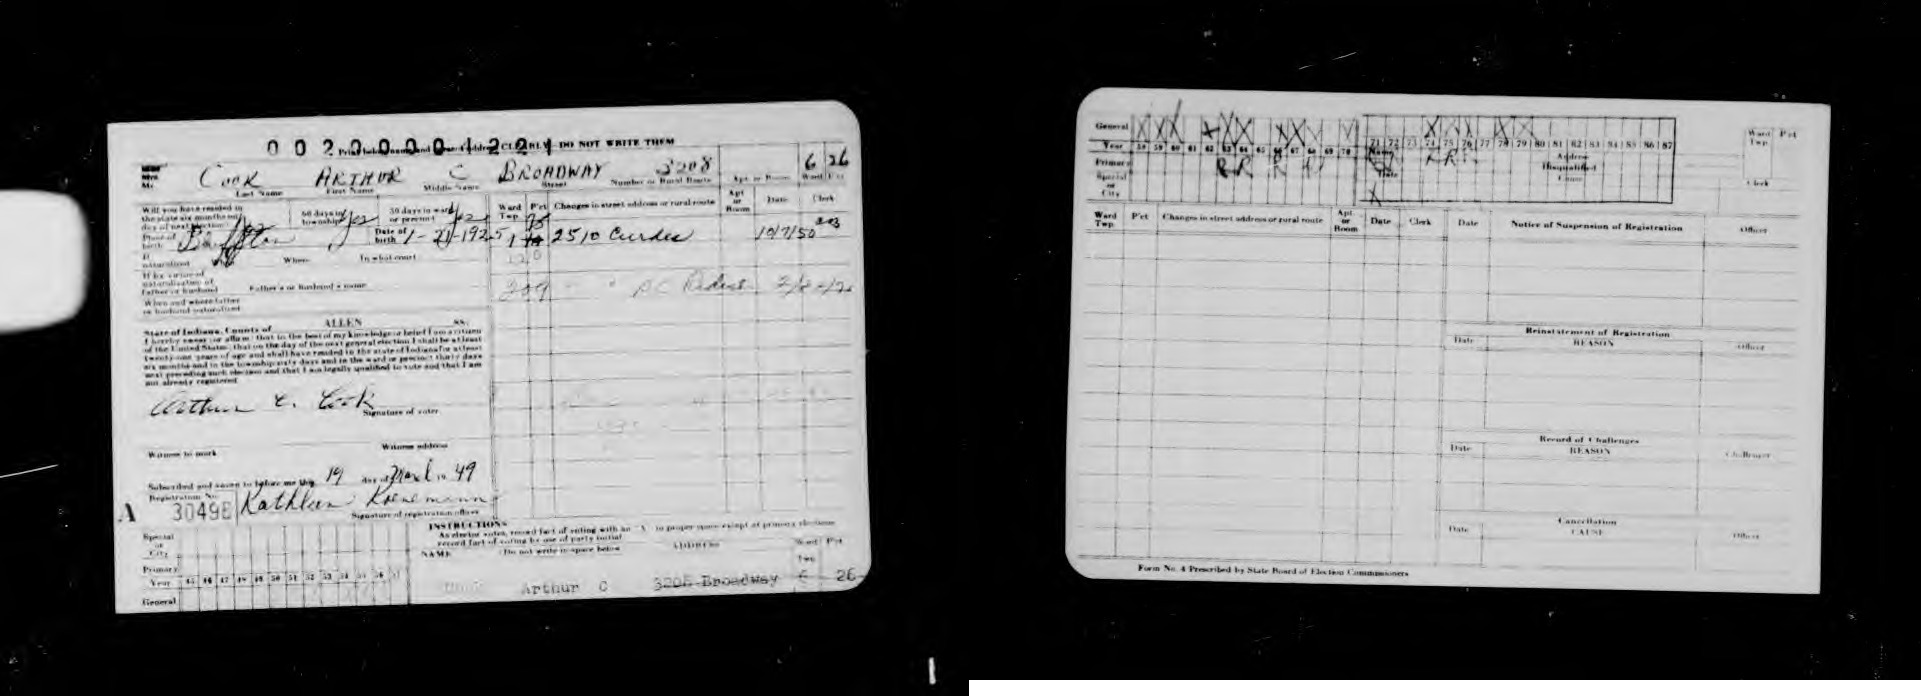 0 0 2 0 0 0 0 1 2 2 1
CLEARLY - DO NOT WRITE THEM
Mr. COOK ARTHUR C BROADWAY 3208 6 26
Last Name First Name Middle Name Street Number or Rural Route Apt or Room Ward Pct
Will you have resided in the state six months on day of next election? yes 60 days in township? yes 30 days in ward or precinct yes
Ward Twp P'ct Changes in street address or rural route Apt or Room Date Clerk
Place of birth Bluffton Date of birth 1-21-1925
1 2510 Curdes 10/7/50
If naturalized Where In what court
If by virtue of naturalization of father or husband Father's or husband's name
309 " "
When and where father or husband naturalized
State of Indiana, County of ALLEN SS:
I hereby swear (or affirm) that to the best of my knowledge or belief I am a citizen
of the United States; that on the day of the next general election I shall be at least
twenty-one years of age and shall have resided in the state of Indiana for at least
six months and in the township sixty days and in the ward or precinct thirty days
next preceding such election and that I am legally qualified to vote and that I am
not already registered
Arthur C. Cook
Signature of voter
Witness to mark Witness address
Subscribed and sworn to before me this 19 day of March 19 49
Registration No.
A 3049 Kathleen Koenemann
Signature of registration officer
INSTRUCTIONS
As elector votes, record fact of voting with an "X" in proper space except at primary elections
record fact of voting by use of party initial
Special or City
Primary
Year 45 46 47 48 49 50 51 52 53 54 55 56
General
NAME (Do not write in space below) ADDRESS Ward Twp Pct
Arthur C 3208 Broadway 6 26
General X X X X X X X X X X X X X
Year 58 59 60 61 62 63 64 65 66 67 68 69 70 71 72 73 74 75 76 77 78 79 80 81 82 83 84 85 86 87
Primary R R R R R
Special or City X
Name Address
Date Disqualified
Cause
Ward Twp P'ct
Clerk
Ward Twp. P'ct Changes in street address or rural route Apt. or Room Date Clerk
Date Notice of Suspension of Registration Officer
Reinstatement of Registration
Date REASON Officer
Record of Challenges
Date REASON Challenger
Cancellation
Date CAUSE Officer
Form No. 4 Prescribed by State Board of Election Commissioners